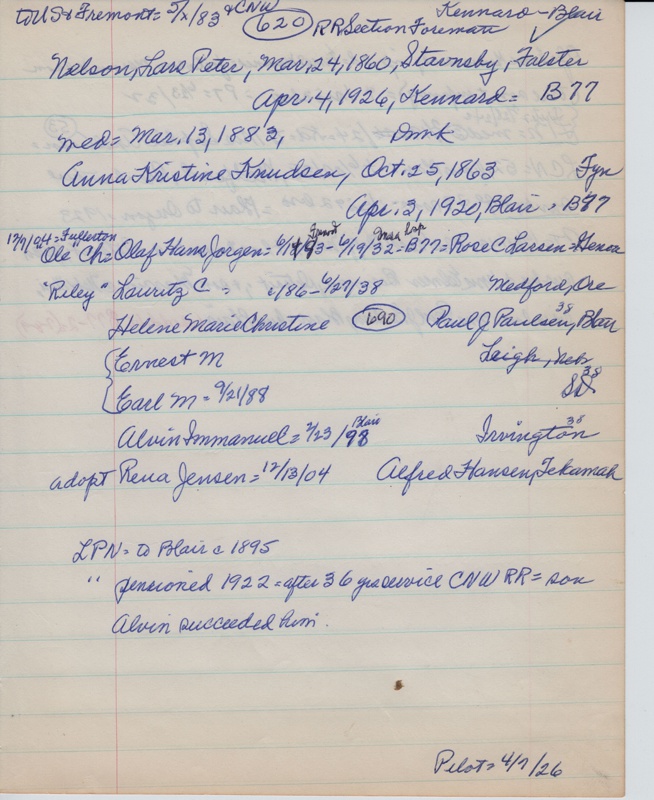 to US & Fremont = 5/x/83 & CNW 620 Kennard - Blair
RR Section Foreman
Nelson, Lars Peter, Mar. 24, 1860, Stavnsby, Falster
Apr. 4, 1926, Kennard = B77
med = Mar. 13, 1883, Dmk
Anna Kristine Knudsen, Oct. 25, 1863 Fyn
Apr. 2, 1920, Blair = B77
12/7/04 = Fullerton
"Ole" Ch = Olaf Hans Jorgen = 6/19/93 - 6/19/32 = B77 = Rose C Larsen = Genoa
"Riley" Lauritz C = c/86 - 6/27/38 Medford, Ore
Helene Marie Christine 690 Paul J Paulsen, 38 Blair
Ernest M Leigh, Neb
Earl M = 9/21/88 SD 38
Alvin Immanuel = 2/23/98 Blair Irvington 38
adopt Rena Jensen = 12/13/04 Alfred Hansen, Tekamah
LPN = to Blair c 1895
" pensioned 1922 = after 36 yrs service CNW RR = son
Alvin succeeded him.
Pilot = 4/7/26